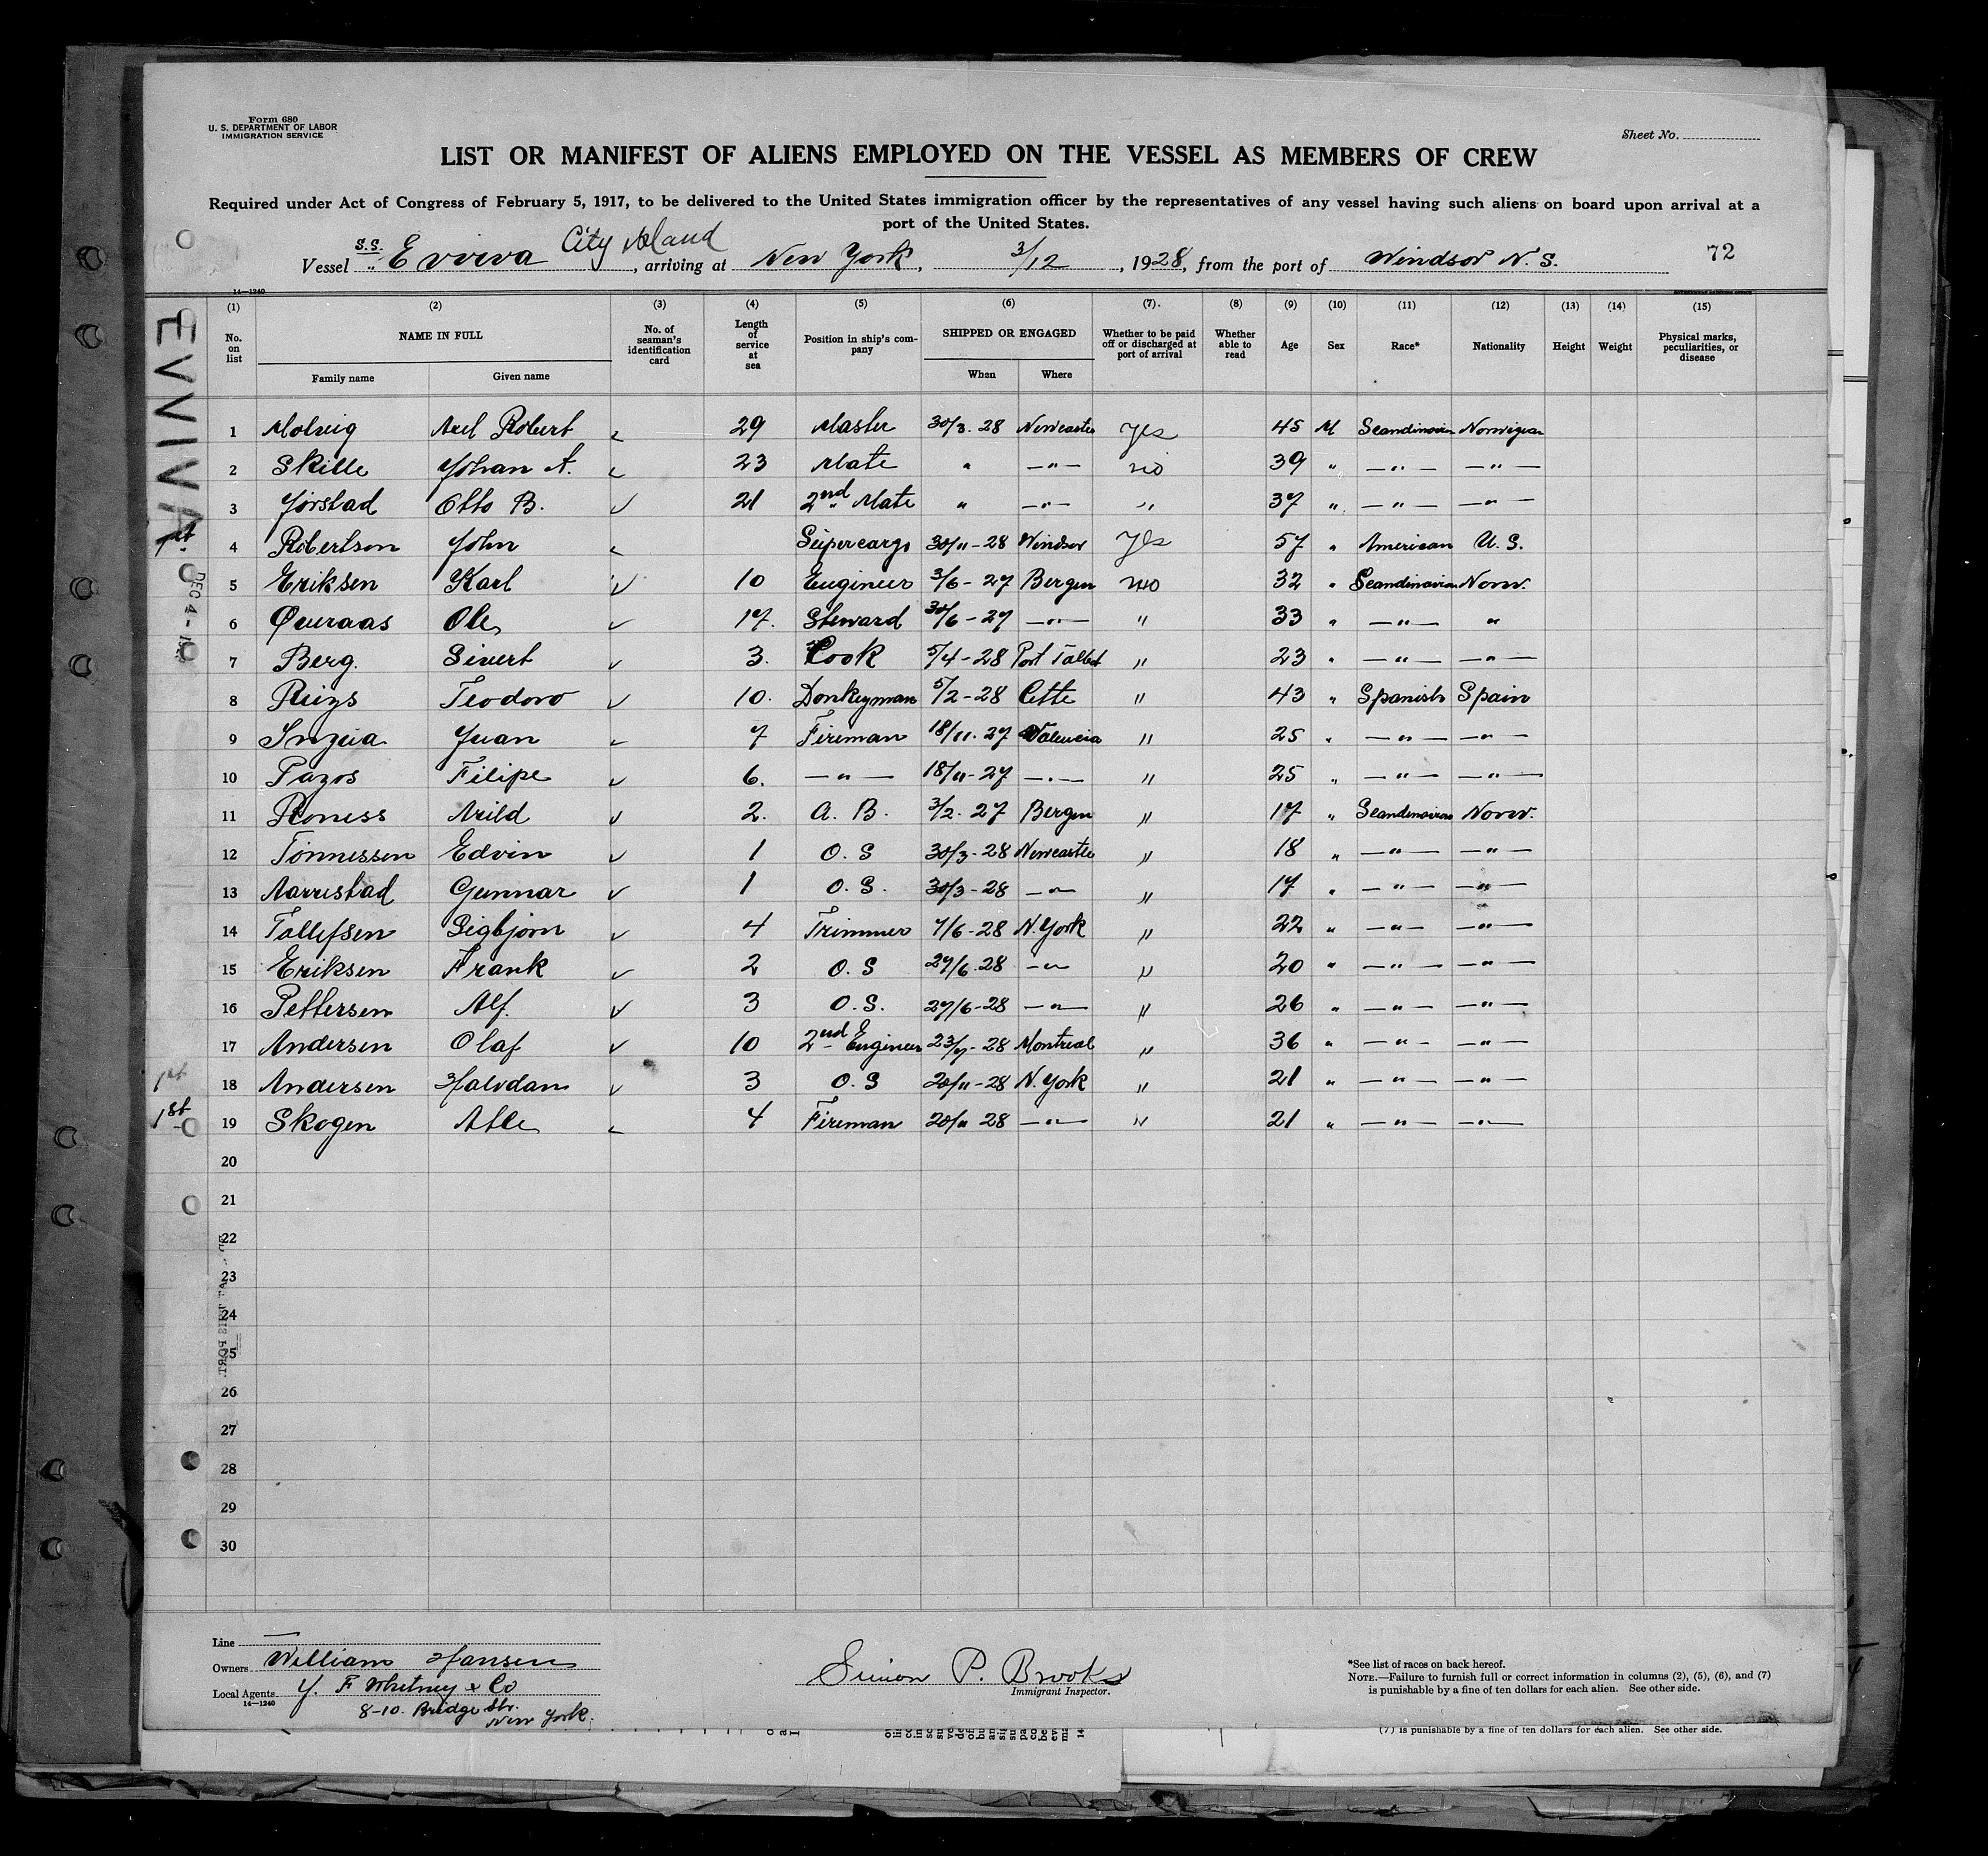 Form 680
U. S. DEPARTMENT OF LABOR
IMMIGRATION SERVICE
Sheet No.
LIST OR MANIFEST OF ALIENS EMPLOYED ON THE VESSEL AS MEMBERS OF CREW
Required under Act of Congress of February 5, 1917, to be delivered to the United States immigration officer by the representatives of any vessel having such aliens on board upon arrival at a
port of the United States.
Vessel S.S. Evviva City Island, arriving at New York, 3/12, 1928, from the port of Windsor N. S. 72
14—1240
EVVIVA
DEC 4 -
(1) (2) (3) (4) (5) (6) (7) (8) (9) (10) (11) (12) (13) (14) (15)
No. on list NAME IN FULL No. of seaman's identification card Length of service at sea Position in ship's company SHIPPED OR ENGAGED Whether to be paid off or discharged at port of arrival Whether able to read Age Sex Race* Nationality Height Weight Physical marks, peculiarities, or disease
Family name Given name When Where
1 Molvig Axel Robert 29 Master 30/3. 28 Newcastle Yes 45 M Scandinavian Norwegian
2 Skille Johan A. 23 Mate " —"— no 39 " —"— —"—
3 Jorstad Otto B. ✓ 21 2nd Mate " —"— " 37 " —"— —"—
1st. 4 Robertson John Supercargo 30/11-28 Windsor Yes 57 " American U. S.
5 Eriksen Karl ✓ 10 Engineer 3/6-27 Bergen no 32 " Scandinavian Norw.
6 Overaas Ole ✓ 17. Steward 30/6-27 —"— " 33 " —"— "
7 Berg. Sivert ✓ 3. Cook 5/4-28 Port Talbot " 23 " —"— —"—
8 Teodoro ✓ 10. Donkeyman 5/2-28 Cette " 43 " Spanish Spain
9 Juan ✓ 7 Fireman 18/11.27 Valencia " 25 " —"— —"—
10 Pazos Filipe ✓ 6. —"— 18/11-27 —"— " 25 " —"— —"—
11 Roness Arild ✓ 2. A. B. 3/2. 27 Bergen " 17 " Scandinavian Norw.
12 Tonnessen Edvin ✓ 1 O. S 30/3-28 Newcastle " 18 " —"— —"—
13 Aarrestad Gunnar ✓ 1 O. S. 30/3-28 —"— " 17 " —"— —"—
14 Tollefsen Sigbjorn ✓ 4 Trimmer 7/6-28 N. York " 22 " —"— —"—
15 Eriksen Frank ✓ 2 O. S 27/6.28 —"— " 20 " —"— —"—
16 Pettersen Alf. ✓ 3 O. S. 27/6-28 —"— " 26 " —"— —"—
17 Andersen Olaf ✓ 10 2nd Engineer 23/7-28 Montreal " 36 " —"— —"—
1st 18 Andersen Halvdan ✓ 3 O. S 20/11-28 N. York " 21 " —"— —"—
1st 19 Skogen Atle 4 Fireman 20/11 28 —"— " 21 " —"— —"—
20
21
22
23
24
25
26
27
28
29
30
THIS PORT.
Line —
Owners William Hansen
Local Agents J. F. Whitney & Co
14—1240
8-10. Bridge Str.
New York.
Simon P. Brooks
Immigrant Inspector.
*See list of races on back hereof.
NOTE.—Failure to furnish full or correct information in columns (2), (5), (6), and (7)
is punishable by a fine of ten dollars for each alien. See other side.
(7) is punishable by a fine of ten dollars for each alien. See other side.